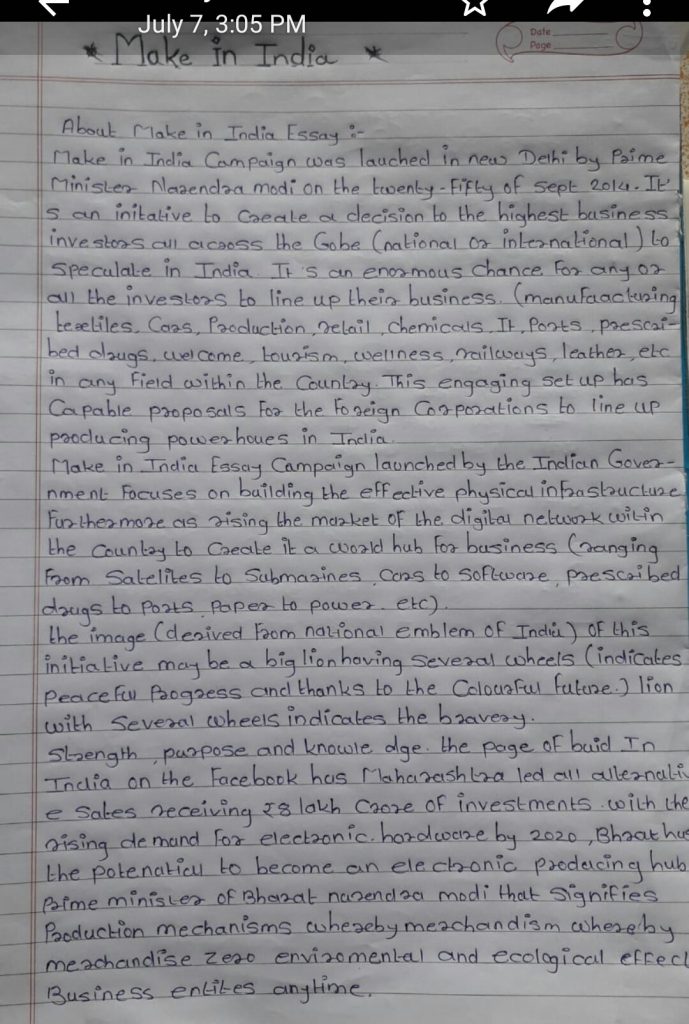 July 7, 3:05 PM
* Make in India *
Date
Page
About Make in India Essay :-
Make in India Campaign was lauched in new Delhi by Prime
Minister Narendra modi on the twenty-Fifty of Sept 2014. It'
s an initative to Create a decision to the highest business
investors all across the Gobe (national or international) to
Speculate in India. It's an enormous chance For any or
all the investors to line up their business. (manufaacturing
textiles, Cars, Production, retail, chemicals, It, Ports, prescri-
bed drugs, welcome, tourism, wellness, railways, leather, etc
in any Field within the Country. This engaging set up has
Capable proposals For the Foreign Corporations to line up
producing powerhoues in India.
Make in India Essay Campaign launched by the Indian Gover-
nment Focuses on building the effective physical infrastructure
Furthermore as rising the market of the digital network witin
the Country to Create it a world hub For business (ranging
From Satelites to Submarines, Cars to Software, prescribed
drugs to Ports, Paper to power. etc).
the image (derived From national emblem of India) of this
initiative may be a big lion having Several wheels (indicates
Peaceful Progress and thanks to the Colourful Future.) lion
with Several wheels indicates the bravery.
Strength, purpose and knowle dge. the page of buid In
India on the Facebook has Maharashtra led all alternativ
e Sates receiving ₹8 lakh Crore of investments. with the
rising demand For electronic. hardware by 2020, Bharat has
the potenatial to become an electronic producing hub
Prime minister of Bharat narendra modi that Signifies
Production mechanisms whereby merchandism whereby
merchandise Zero enviromental and ecological effect
Business entites anytime.